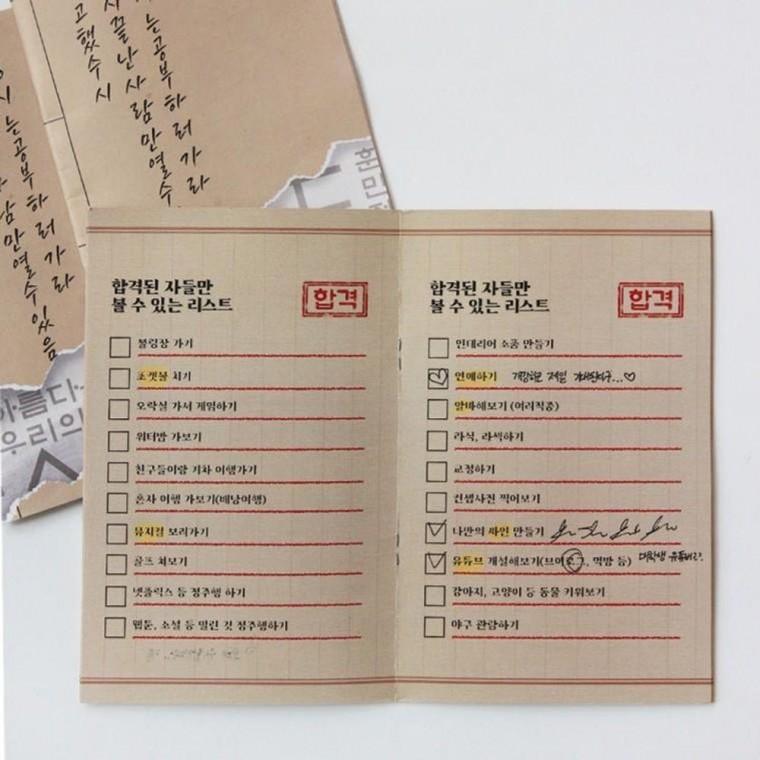 고했수시
시끝난사람만열수
는공부하러가라
시는공부하러가라
사람만열수있음
훈민
아름다
우리의
합격된 자들만
볼 수 있는 리스트
합격
볼링장 가기
포켓볼 치기
오락실 가서 게임하기
워터밤 가보기
친구들이랑 기차 여행가기
혼자 여행 가보기(배낭여행)
뮤지컬 보러가기
골프 쳐보기
넷플릭스 등 정주행 하기
웹툰, 소설 등 밀린 것 정주행하기
합격된 자들만
볼 수 있는 리스트
합격
인테리어 소품 만들기
연애하기 제일 ...♡
알바해보기 (여러직종)
라식, 라섹하기
교정하기
컨셉사진 찍어보기
나만의 싸인 만들기
유튜브 개설해보기(브이로그, 먹방 등) 대학생 유튜버?
강아지, 고양이 등 동물 키워보기
야구 관람하기